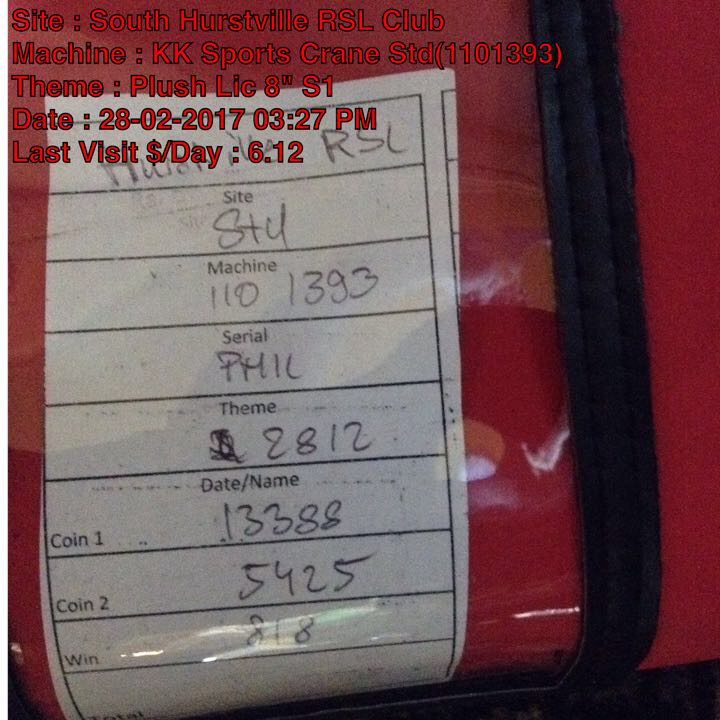 Site : South Hurstville RSL Club
Machine : KK Sports Crane Std(1101393)
Theme : Plush Lic 8" S1
Date : 28-02-2017 03:27 PM
Last Visit $/Day : 6.12
RSL
Site
Std
Machine
110 1393
Serial
PHIL
Theme
2812
Date/Name
13388
Coin 1
5425
Coin 2
818
Win
Total